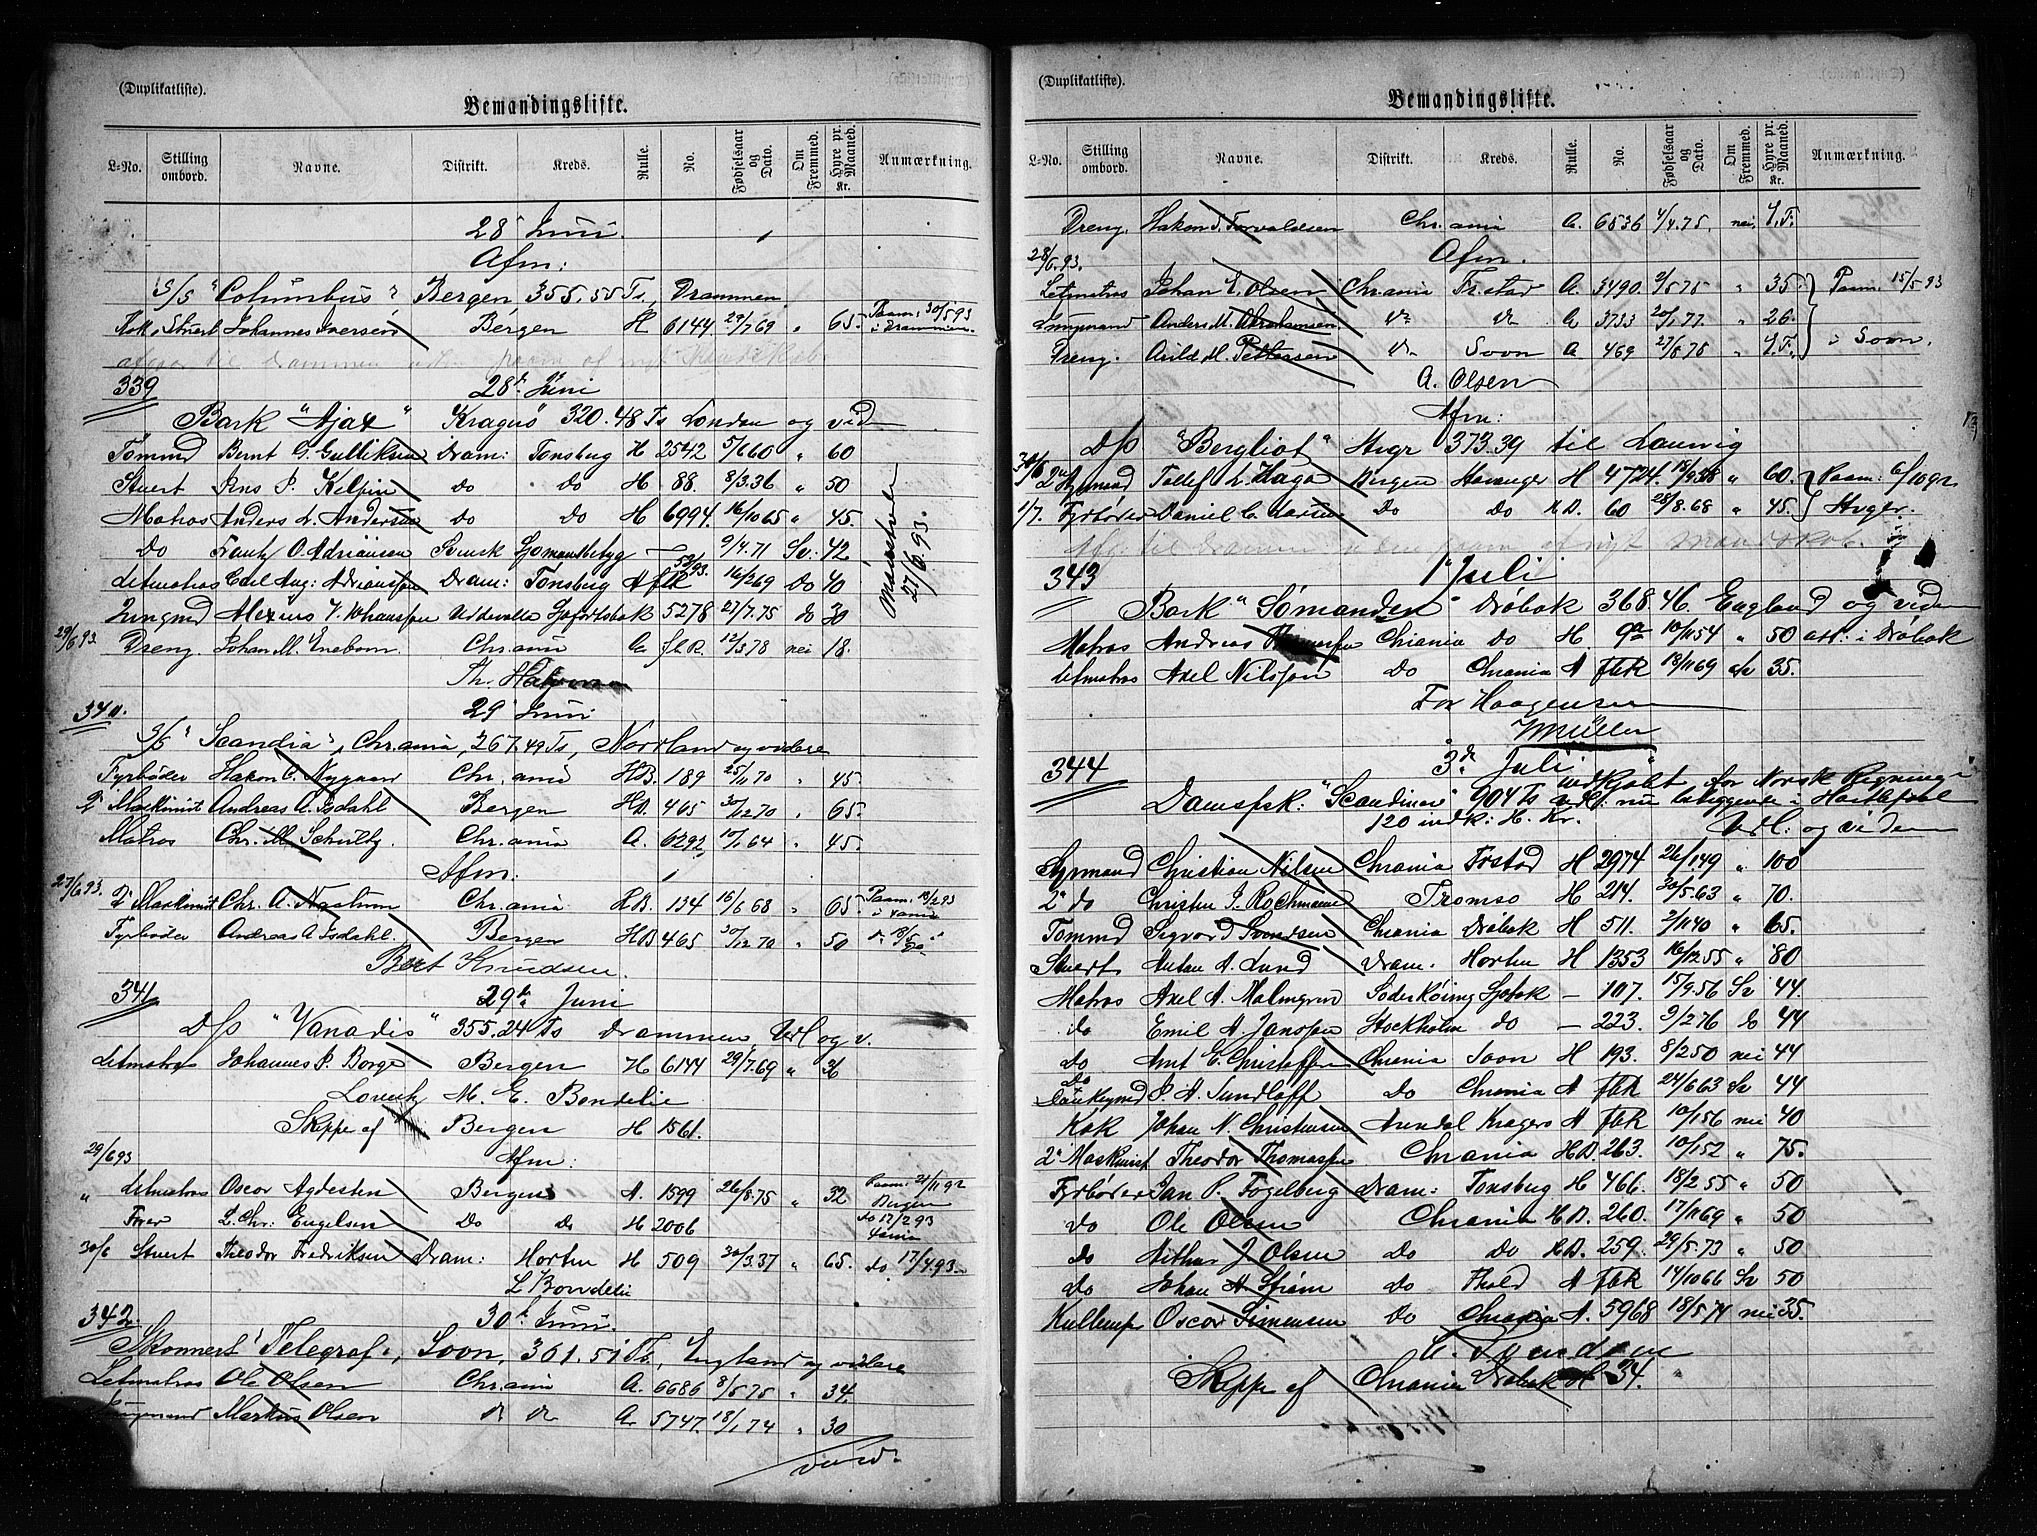 (Duplikatliste).
Bemandingsliste.
L-No. Stilling ombord. Navne. Distrikt. Kreds. Rulle. No. Fødselsaar og Dato. Om Fremmed. Hyre pr. Maaned. Kr. Anmærkning.
28 Juni.
Afm:
S/S "Columbus", Bergen, 355.55 Ts, Drammen.
Kok & Stuert Johannes Iversen Bergen H 6144 29/7 69 " 65 Paam: 30/5 93 i Drammen.
339
28de Juni
Bark "Ajax" Kragerø 320.48 Ts London og vid
Tømmd Bernt G. Gulliksen Dram: Tonsbug H 2542 5/6 60 " 60
Stuert Jens P. Kelpin do do H 88. 8/3.36 " 50
Matros Anders L. Andersen do do H 6994. 16/10 65 " 45.
Do Frantz O. Adriansen Svensk 9/4.71 Sv: 42
Letmatros Carl Aug: Adriansson Dram: Tonsbug A fLR 16/2 69 Do 40
Jungmd Alexius V. Johansson Uddevalla 5278 27/7.75 do 30
Mønstret 27/6.93.
29/6 93. Dreng. Johan M. Eneborn Chr.ania A fLR. 12/3 78 nei 18.
340.
29 Juni
S/S "Scandia", Chr.ania, 267.49 Ts, Norrland og videre
Fyrbøder Hakon C. Nygaard Chr.ania HB. 189 25/11 70 " 45.
2' Maskinist Andreas A. Isdahl Bergen HB. 465 30/12 70 " 65.
Matros Chr: M. Schulty Chr.ania A. 6292 10/1 64 " 45.
Afm:
27/6 93. 2' Maskinist Chr. A. Naatrum Chr.ania HB. 134 16/6 68 " 65
Fyrbøder Andreas A. Isdahl. Bergen HB 465 30/12 70 " 50
Bert Knudsen.
341
29de Juni
D/S "Vanadis" 355.24 Ts Drammen, Urt og v.
Letmatros Johannes P. Borge Bergen H 6144 29/7.69 " 36
Lorentz M. E. Bondelie
Skippe af Bergen H 1561.
29/6 93 Afm:
" Letmatros Oscar Agdesten Bergen A. 1599 26/8.75 " 32 Paam: 21/11 92 Bergen
Fører L. Chr: Engelsen Do Do H 2006 do 12/2 93
30/6 Stuert Theodor Fredriksen Dram: Horten H 509 30/3.37 " 65. do 17/4.93.
L Bondelie
342.
30de Juni.
Skonnert "Telegraf", Soon, 361.51 Ts, England og videre
Letmatros Ole Olsen Chr.ania A. 6686 8/5 75 " 34.
Jungmand Markus Olsen do do A. 5747. 18/1 74 " 30
vend.
(Duplikatliste).
Bemandingsliste.
L-No. Stilling ombord. Navne. Distrikt. Kreds. Rulle. No. Fødselsaar og Dato. Om Fremmed. Hyre pr. Maaned. Kr. Anmærkning.
Dreng. Hakon T. Torvaldsen Chr.ania A. 6536 4/4.75. nei
28/6.93. Afm.
Letmatros Johan E. Olsen Chr.ania Fr.stad A. 3490. 2/5 75 " 35. Paam: 15/5 93
Jungmand Anders M. Abrahamsen do do A 3733 20/1 77. " 26.
Dreng. Arild M. Pettersen do Soon A 469 27/8 78 " i Soon.
A. Olsen
Afm:
D/S "Bergliot" Stvgr 373.39 til Laurvig
30/6 2den Styrmand Tollef L. Haga Bergen Stavanger H 4724. 18/9 58 " 60. Paam: 6/10 92
1/7. Fyrbøder Daniel C. Larsen Do Do HD. 60 28/8.68 " 45. Stvger.
343
1' Juli
Bark "Sømanden" Drøbak 368.46 England og viden
Matros Andreas Chr.ania Do H 9a 10/11 54 " 50 att: i Drøbak
Letmatros Axel Nilsson Do Chr.ania A fLR 18/11 69 Sv 35.
For Haagensen
Müller
344
3de Juli
indkjøbt for Norsk Regning &
Dampsk: "Scandinav" 904 Ts nu liggende i Hartlepool
120 indk: H. Kr. Urt: og viden
Styrmand Christian Nilsen Chr.ania Fr.stad H 2974 26/1 49 " 100
2' do Christen J. Rochmann Tromsø H 214. 30/5.63 " 70.
Tømmd Sigvard Svendsen Chr.ania Drøbak H 511. 2/11 40 " 65.
Stuert Anton A. Lund Dram. Horten H 1353 16/12 55 " 80
Matros Axel A. Malmgren Söderköping Sjøbok — 107. 15/9.56 Sv 44.
do Emil A. Jansson Stockholm do — 223. 9/2 76 do 44
do Arnt E. Christoffersen Chr.ania Soon H 193. 8/2 50 nei 44
Do & Dankeymd P. A. Sundloff Do Chr.ania A fLR 24/6 63 Sv 44
Kok Johan N. Christensen Arendal Kragerø A fLR 10/1 56 nei 40
2' Maskinist Theodor Thomassen Chr.ania HD. 263. 10/1 52 " 75.
Fyrbøder Jan P. Fogelberg Dram: Tonsbug H 466. 18/2.55 " 50
do Ole Olsen Chr.ania HD. 260. 17/11 69 " 50
do Arthur J. Olsen Do Do HD. 259. 29/5.73 " 50
do Johan A. Strøm do Fhald A fLR 14/10 66 Sv 50
Kullemper Oscar Simensen Do Chr.ania A. 5968 18/5.71 nei 35.
Skippe af Chr.ania Drøbak H. 34.